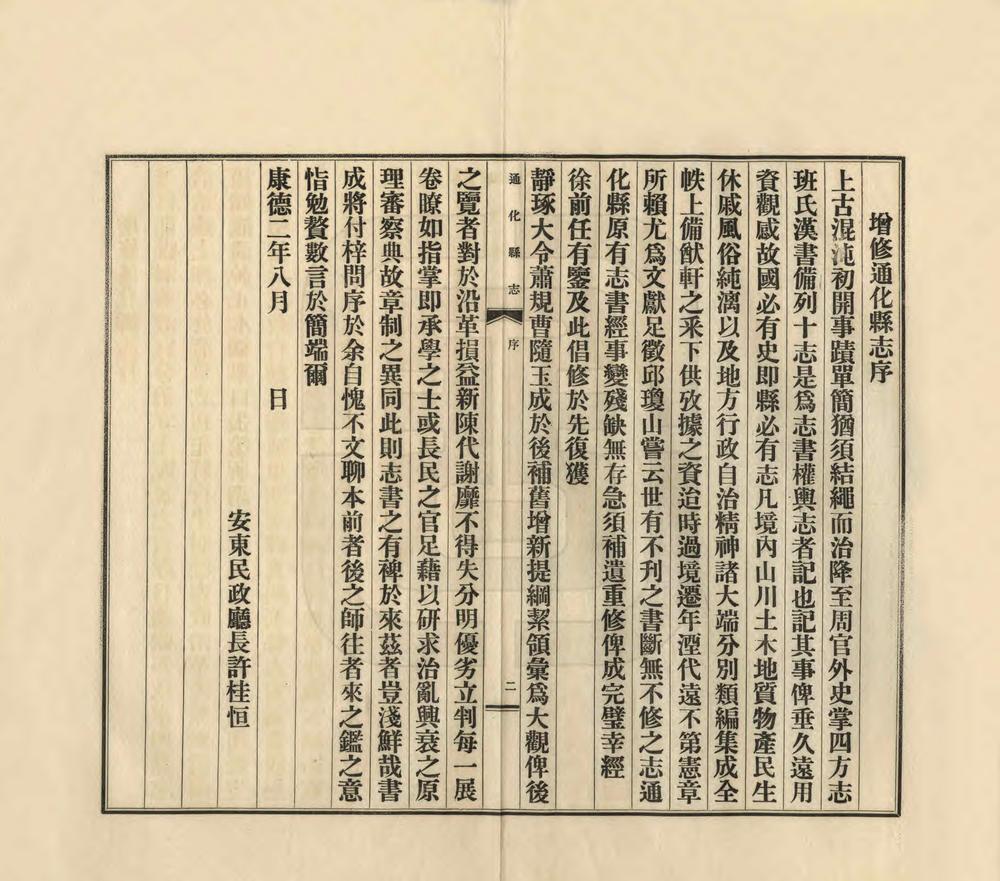 增修通化縣志序
上古混沌初開事蹟單簡猶須結繩而治降至周官外史掌四方志
班氏漢書備列十志是爲志書權輿志者記也記其事俾垂久遠用
資觀感故國必有史即縣必有志凡境內山川土木地質物產民生
休戚風俗純漓以及地方行政自治精神諸大端分別類編集成全
帙上備猷軒之采下供攷據之資迨時過境遷年湮代遠不第憲章
所賴尤爲文獻足徵邱瓊山嘗云世有不刊之書斷無不修之志通
化縣原有志書經事變殘缺無存急須補遺重修俾成完璧幸經
徐前任有鑒及此倡修於先復獲
靜琢大令蕭規曹隨玉成於後補舊增新提綱絜領彙爲大觀俾後
通化縣志
序
二
之覽者對於沿革損益新陳代謝靡不得失分明優劣立判每一展
卷瞭如指掌即承學之士或長民之官足藉以研求治亂興衰之原
理審察典故章制之異同此則志書之有裨於來茲者豈淺鮮哉書
成將付梓問序於余自愧不文聊本前者後之師往者來之鑑之意
恉勉贅數言於簡端爾
康德二年八月　　日
安東民政廳長許桂恒